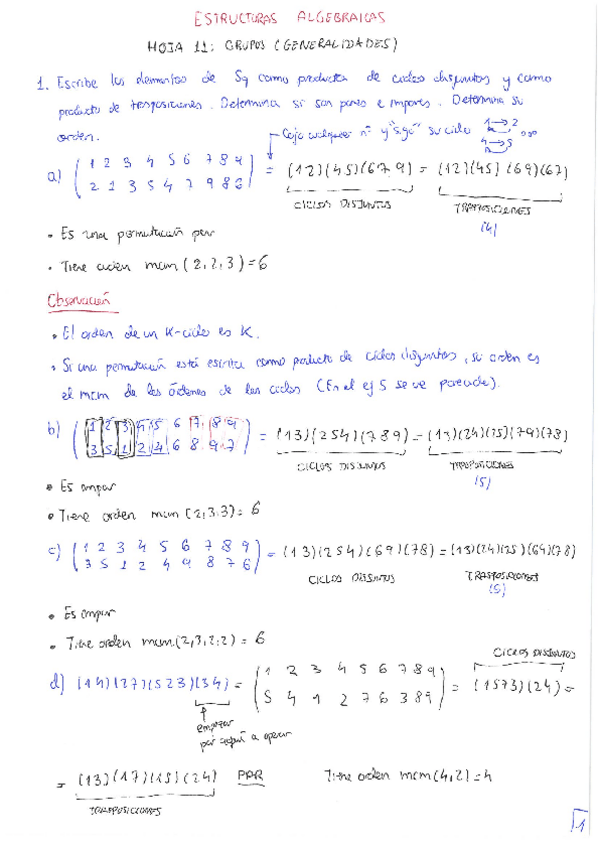 ESTRUCTURAS ALGEBRAICAS
HOJA 11: GRUPOS (GENERALIDADES)
1. Escribe los elementos de S9 como producto de ciclos disjuntos y como
producto de trasposiciones. Determina si son pares o impares. Determina su
orden.
Cojo cualquier nº y "sigo" su ciclo 1 → 2 ...
4 → 5
a) ( 1 2 3 4 5 6 7 8 9
2 1 3 5 4 7 9 8 6 ) = (12)(45)(679) = (12)(45)(69)(67)
CICLOS DISJUNTOS TRASPOSICIONES
(4)
• Es una permutación par
• Tiene orden mcm (2,2,3) = 6
Observación
• El orden de un K-ciclo es K.
• Si una permutación está escrita como producto de ciclos disjuntos, su orden es
el mcm de los órdenes de los ciclos (En el ej 5 se ve porqué).
b) ( 1 2 3 4 5 6 7 8 9
3 5 1 2 4 6 8 9 7 ) = (13)(254)(789) = (13)(24)(25)(79)(78)
CICLOS DISJUNTOS TRASPOSICIONES
(5)
• Es impar
• Tiene orden mcm (2,3,3) = 6
c) ( 1 2 3 4 5 6 7 8 9
3 5 1 2 4 9 8 7 6 ) = (13)(254)(69)(78) = (13)(24)(25)(69)(78)
CICLOS DISJUNTOS TRASPOSICIONES
(5)
• Es impar
• Tiene orden mcm (2,3,2,2) = 6
CICLOS DISJUNTOS
d) (14)(27)(523)(34) = ( 1 2 3 4 5 6 7 8 9
5 4 1 2 7 6 3 8 9 ) = (1573)(24) =
empezar
por aquí a operar
= (13)(17)(15)(24) PAR Tiene orden mcm(4,2) = 4
TRASPOSICIONES
1